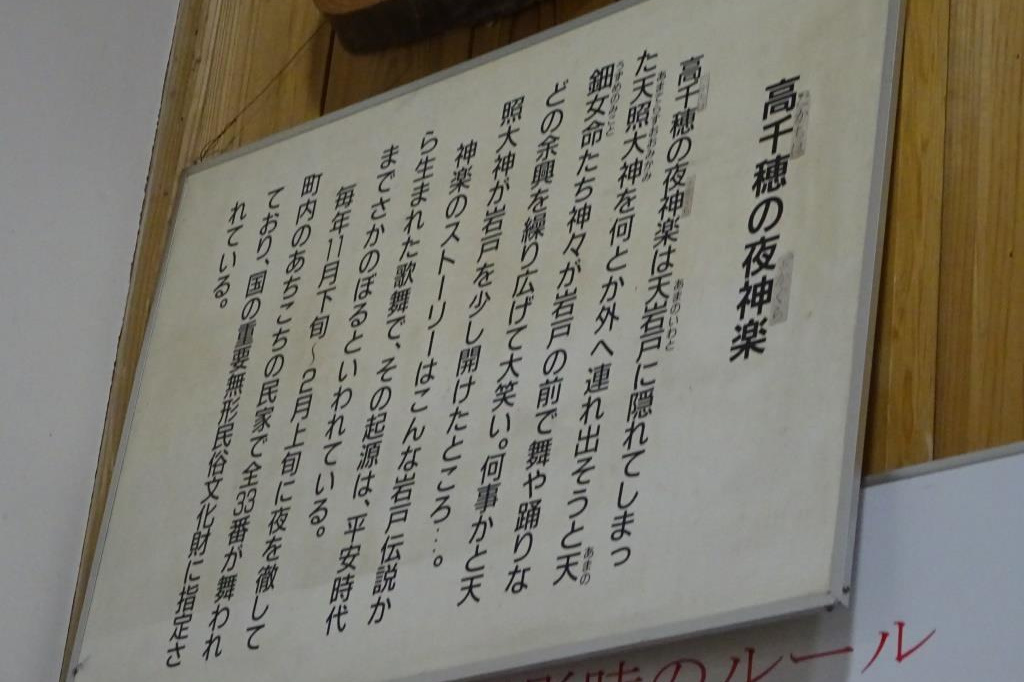 高千穂の夜神楽
高千穂の夜神楽は天岩戸に隠れてしまっ
た天照大神を何とか外へ連れ出そうと天
鈿女命たち神々が岩戸の前で舞や踊りな
どの余興を繰り広げて大笑い。何事かと天
照大神が岩戸を少し開けたところ…。
神楽のストーリーはこんな岩戸伝説か
ら生まれた歌舞で、その起源は、平安時代
までさかのぼるといわれている。
毎年11月下旬～2月上旬に夜を徹して
町内のあちこちの民家で全33番が舞われ
ており、国の重要無形民俗文化財に指定さ
れている。
時のルール